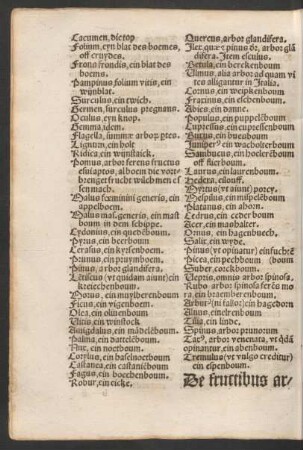 Cacumen, dietop
Folium, eyn blat des boemes,
oft cruydes.
Frons frondis, ein blat des
boems.
Pampinus folium vitis, ein
wijnblat.
Surculus, ein twich.
Germen, surculus pregnans.
Oculus, eyn knop.
Gemma, idem.
Flagella, summæ arbop ptes.
Lignum, ein holt
Ridica, ein wijnstaick.
Pomus, arbor ferens fructus
esui aptos, al boem die vort
brenget frucht
sen mach.
Malus fœminini generis, ein
appelboem.
Malus mas. generis, ein mast
boum in dem schippe.
Cydonius, ein quedēboum.
Pyrus, ein beerboum
Cerasus, ein kyrsenboem.
Prunus, ein pruymboem.
Pinus, arbor glandifera.
(vt quidam aiunt) ein
kreiechenboum.
Morus, ein muylberenboum
Ficus, ein vigenboem.
Olea, ein oliuenboum
Vitis, ein wijnstock
Amigdalus, ein mādelēboum.
Palma, ein dattelēboum.
Nux, ein noetboum.
Corylus, ein haselnoetboum
Castanea, ein castaniēboum
Fagus, ein boechenboum.
Robur, ein eicke.
Quercus, arbor glandifera.
Ilex quæ et pinus dr, arbor glā
difera. Item esculus.
Betula, ein berckenboum
Vlmus, alia arbor ad quam vi
tes alligantur in Italia.
Cornus, ein weipkenboum
Fracinus, ein eschenboum.
Abies, ein denne.
Populus, ein puppelēboum
Cupressus, ein cupressenboum
Buxus, ein bucsboum
Juniperus ein wacholterboum
Sambucus, ein hoelenterboem
oft flierboum.
Laurus, ein laurenboum.
Hedera, eiloeff.
Myrtus (vt aiunt) porey.
Mespilus, ein mispelēboum
Platanus, ein ahorn.
Cedrus, ein cederboum
Acer, ein mashalter.
Ornus, ein hagenbuech.
Salix, ein wyde.
Pinus (vt opinatur) ein fuchrē
Picea, ein pechboum (boum
Suber, corckboum.
Vepres, omnis arbor spinosa.
Rubus arbor spinosa ferēs mo
ra, ein braemberenboum.
Arbutus (ni fallor) ein hagedorn
Alnus, ein elrenboum
Tilia, ein linde.
Spinus, arbor prunorum
Taxus, arbor venenata, vt quidā
opinantur, ein abenboum.
Tremulus (vt vulgo creditur)
ein espenboum.
De fructibus ar-